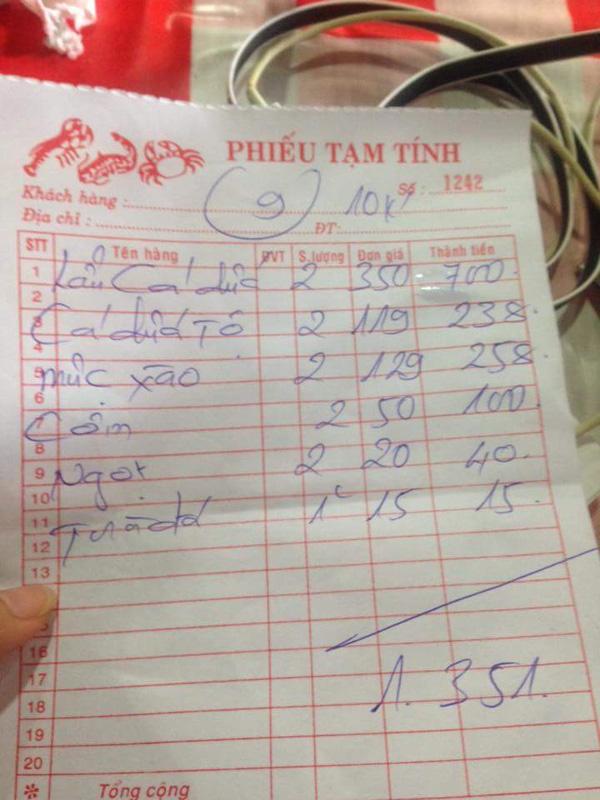 PHIẾU TẠM TÍNH
Khách hàng : 9 10k Số : 1242
Địa chỉ : ĐT:
STT Tên hàng ĐVT S.lượng Đơn giá Thành tiền
1 Lẩu Cá đuối 2 350 700
2
3 Cá đuối Tộ 2 119 238
4
5 mực xào 2 129 258
6
Cơm 2 50 100
8
9 Ngọt 2 20 40
10
11 Trà đá 1 15 15
12
13
16
17 1.351
18
19
20
* Tổng cộng